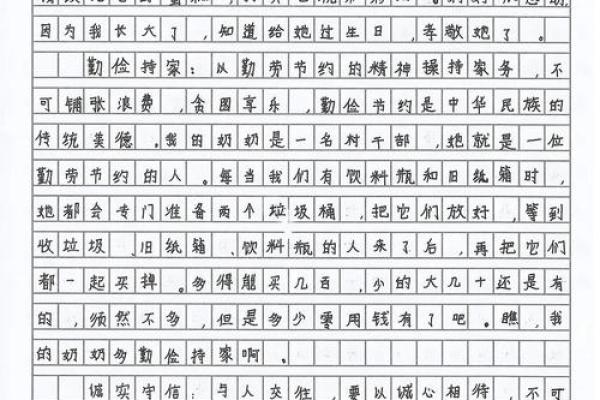 因为我长大了，知道给她过生日，孝敬她了。
勤俭持家：以勤劳节约的精神操持家务，不
可铺张浪费，贪图享乐，勤俭节约是中华民族的
传统美德。我的奶奶是一名村干部，她就是一位
勤劳节约的人。每当我们有饮料瓶和旧纸箱时，
她都会专门准备两个垃圾桶，把它们放好，等到
收垃圾、旧纸箱、饮料瓶的人来了后，再把它们
都一起买掉。多得能买几百，少的大几十还是有
的，须然不多，但是多少零用钱有了吧。瞧，我
的奶奶多勤俭持家啊。
诚实守信：与人交往，要以诚心相待，不可